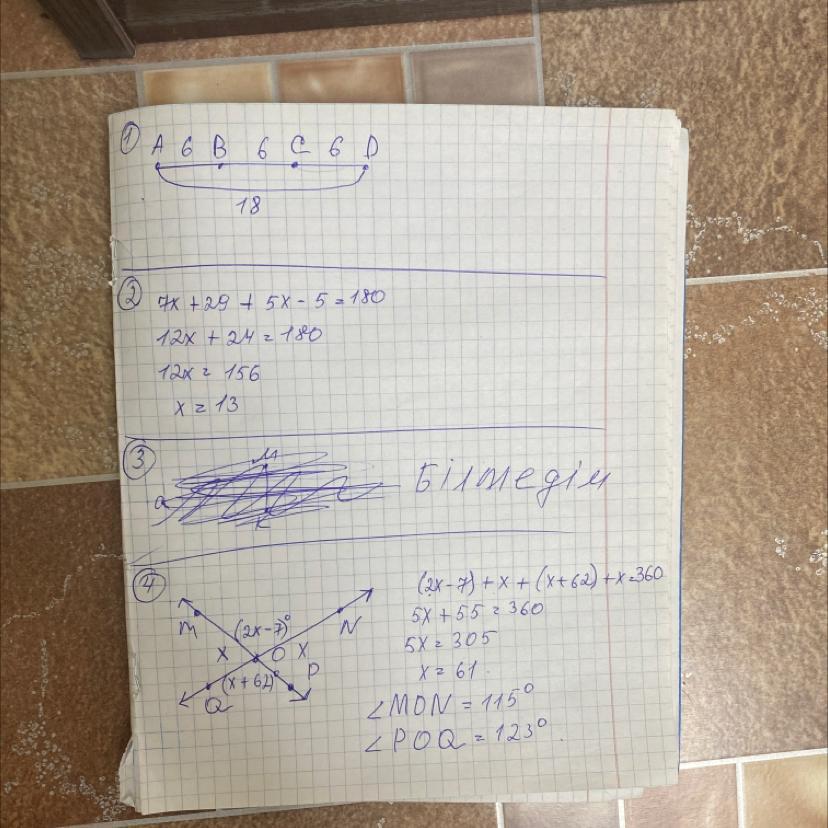 1
A 6 B 6 C 6 D
18
2
7x + 29 + 5x - 5 = 180
12x + 24 = 180
12x = 156
x = 13
3
Білмедім
4
(2x-7) + x + (x+62) + x = 360
5x + 55 = 360
5x = 305
x = 61
M (2x-7)° N
x O x
P
Q (x+62)°
∠MON = 115°
∠POQ = 123°.